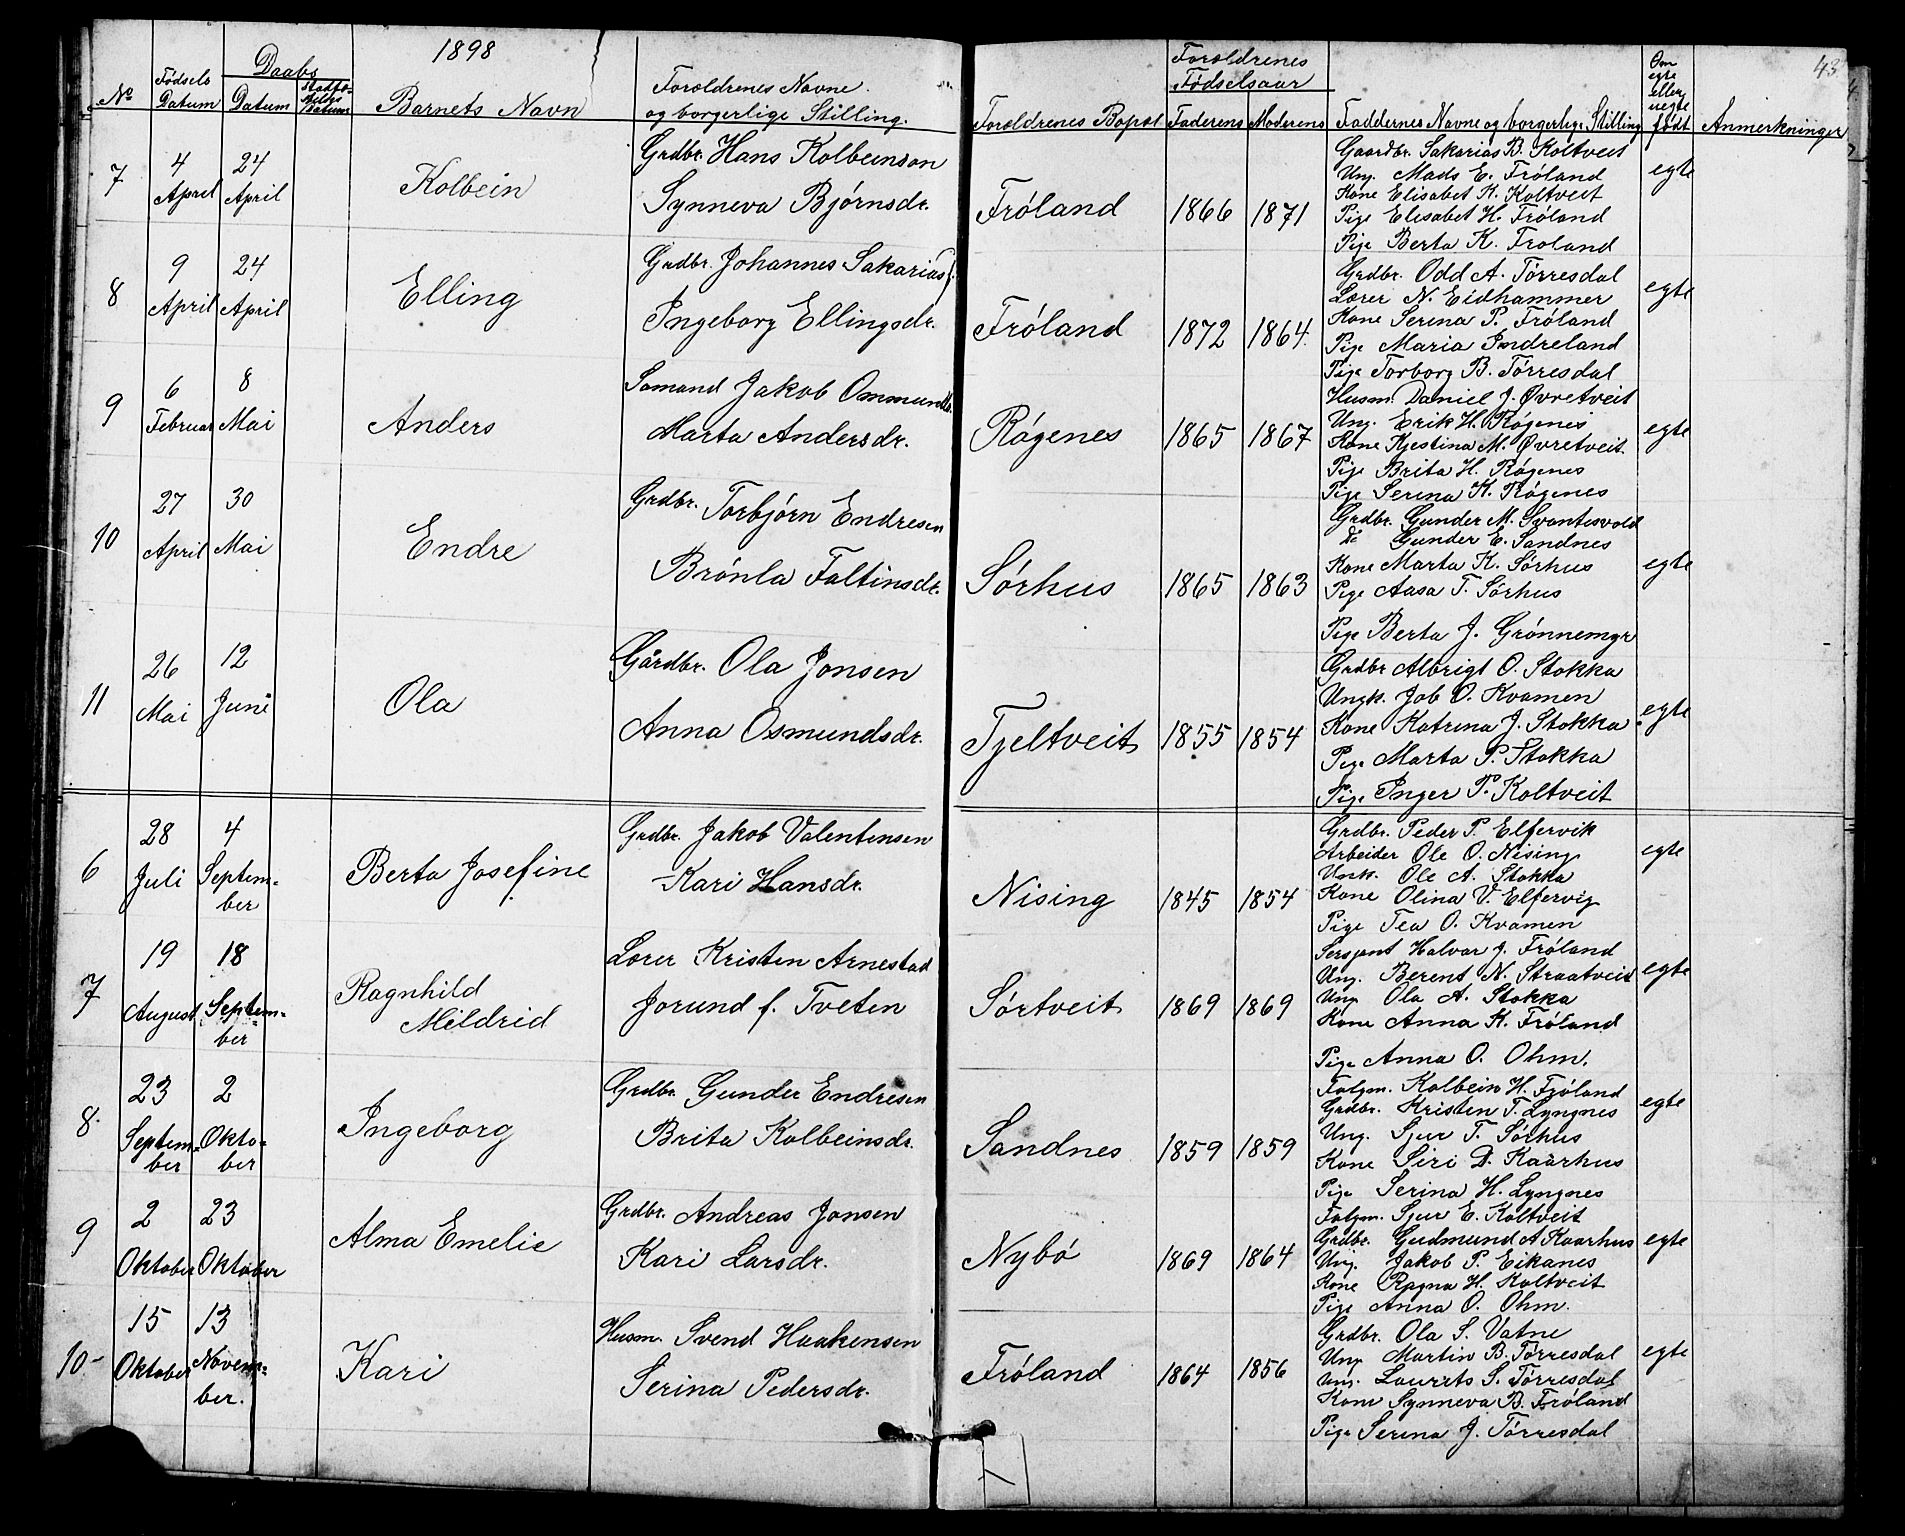 1898
43.
No
Fødsels Datum
Daabs
Datum
Stadfæ- Datum
Barnets Navn
Forældrenes Navne og borgerlige Stilling.
Forældrenes Bopæl
Forældrenes Fødselsaar
Faderens
Moderens
Faddernes Navne og borgerlige Stilling
Om egte eller uegte født
Anmerkninger
7
4 April
24 April
Kolbein
Grdbr. Hans Kolbeinson
Synneva Bjørnsdr.
Frøland
1866
1871
Gaardbr. Sakarias B. Koltveit
Ung. Mads E. Frøland
Kone Elisabet K. Koltveit
Pige Elisabet H. Frøland
Pige Berta K. Frøland
egte
8
9 April
24 April
Elling
Grdbr. Johannes Sakarias
Ingeborg Ellingsdr.
Frøland
1872
1864.
Grdbr. Odd A. Tørresdal
Lærer N. Eidhammer
Kone Serina P. Frøland
Pige Maria Indreland
Pige Torborg B. Tørresdal
egte
9
6 Februar
8 Mai
Anders
Sømand Jakob Ommunds.
Marta Andersdr.
Røgenes
1865
1867
Husm. Daniel J. Øvretveit
Ung. Erik H. Røgenes
Kone Kjestina M. Øvretveit
Pige Brita H. Røgenes
Pige Serina K. Røgenes
egte
10
27 April
30 Mai
Endre
Grdbr. Torbjørn Endresen
Brønla Faltinsdr.
Sørhus
1865
1863
Grdbr. Gunder M. Svantesvold
Do Gunder E. Sandnes
Kone Marta K. Sørhus
Pige Aasa T. Sørhus
Pige Berta J. Grønnemyr
egte
11
26 Mai
12 Juni
Ola
Gårdbr. Ola Jonsen
Anna Osmundsdr.
Tjeltveit
1855
1854
Grdbr Albrigt O. Stokka
Ungk. Job O. Kvamen
Kone Katrina J. Stokka
Pige Marta P. Stokka
Pige Inger P. Koltveit
egte
6
28 Juli
4 Septem-
ber
Berta Josefine
Grdbr. Jakob Valentinsen
Kari Hansdr.
Nising
1845
1854
Grdbr. Peder P. Elfervik
Arbeider Ole O. Nising
Unk. Ole A. Stokka
Kone Olina V. Elfervig
Pige Tea O. Kvamen
egte
7
19 August
18 Septem-
ber
Ragnhild
Mildrid
Lærer Kristen Arnestad
Jorund f. Tveten
Sørtveit
1869
1869
Sersjant Halvar J. Frøland
Ung. Berent N. Straatveit
Ung Ola A. Stokka
Kone Anna K. Frøland
Pige Anna O. Ohm.
egte
8.
23 Septem-
ber
2 Okto-
ber
Ingeborg
Grdbr. Gunder Endresen
Brita Kolbeinsdr.
Sandnes
1859
1859
Folgm. Kolbein H. Frøland
Grdbr. Kristen T. Lyngnes
Ung. Sjur T. Sørhus
Kone Siri D. Kaarhus
Pige Serina H. Lyngnes
egte
9
2 Oktober
23 Oktober
Alma Emelie
Grdbr. Andreas Jonsen
Kari Larsdr.
Nybø
1869
1864
Folgm. Sjur E. Koltveit
Grdbr. Gudmund A Kaarhus
Ung. Jakob P. Eikanes
Kone Ragna H. Koltveit
Pige Anna O. Ohm.
egte
10-
15 Oktober
13 Novem-
ber.
Kari
Husm. Svend Haakensen
Serina Pedersdr.
Frøland
1864
1856
Grdbr. Ola S. Vatne
Ung Martin B. Tørresdal
Ung. Laurits S. Tørresdal
Kone Synneva B. Frøland
Pige Serina J. Tørresdal
egte